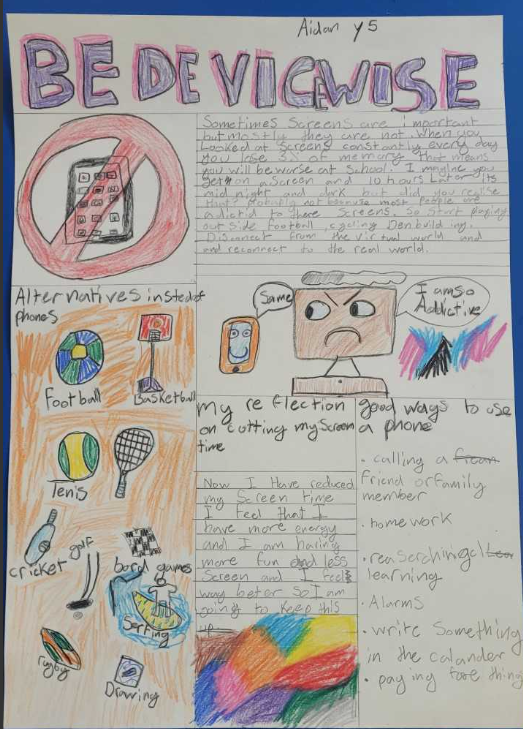 Aidan y5
BE DEVICEWISE
Sometimes Screens are important
but mostly they are not. When you
Looked at Screens constantly every day
you lose 3X at memory that means
you will be worse at School. Imagine you
get on a Screen and 10 hours Later its
mid night and dark but did you realise
that? Probably not because most people are
addictid to there Screens. So Start playing
out side Football, cycling Den building.
Disconect from the virtual world and
and reconnect to the real world.
Alternatives insted of
phones
Football
Basketball
Tenis
cricket
golf
bord games
Serfing
rugby
Drawing
Same
I am so
Addictive
my reflection
on cutting my Screen
time
Now I Have reduced
my Screen time
I feel that I
have more energy
and I am having
more fun and less
Screen and I feel
way better So I am
going to keep this
up
good ways to use
a phone
• calling a
friend or family
member
• homework
• reaserching
learning
• Alarms
• write Something
in the calander
• paying fore thing